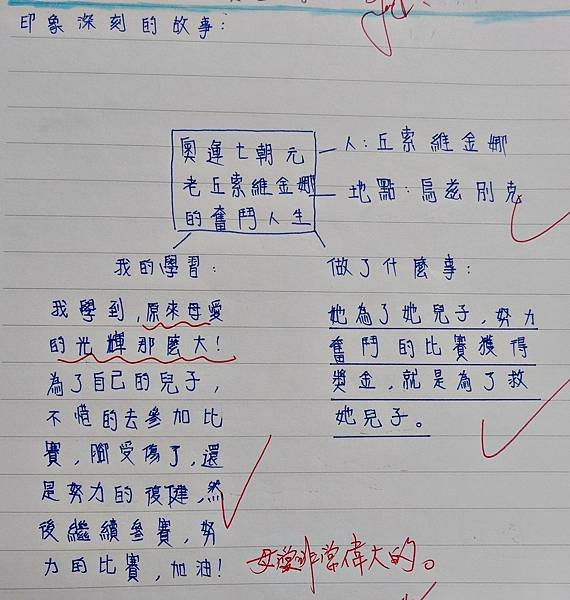 印象深刻的故事:
奧運七朝元
老丘索維金娜
的奮鬥人生
人:丘索維金娜
地點:烏茲別克
我的學習:
我學到,原來母愛
的光輝那麼大!
為了自己的兒子,
不惜的去參加比
賽,腳受傷了,還
是努力的復健,然
後繼續參賽,努
力的比賽,加油!
做了什麼事:
她為了她兒子,努力
奮鬥的比賽獲得
獎金,就是為了救
她兒子。
母愛非常偉大的。